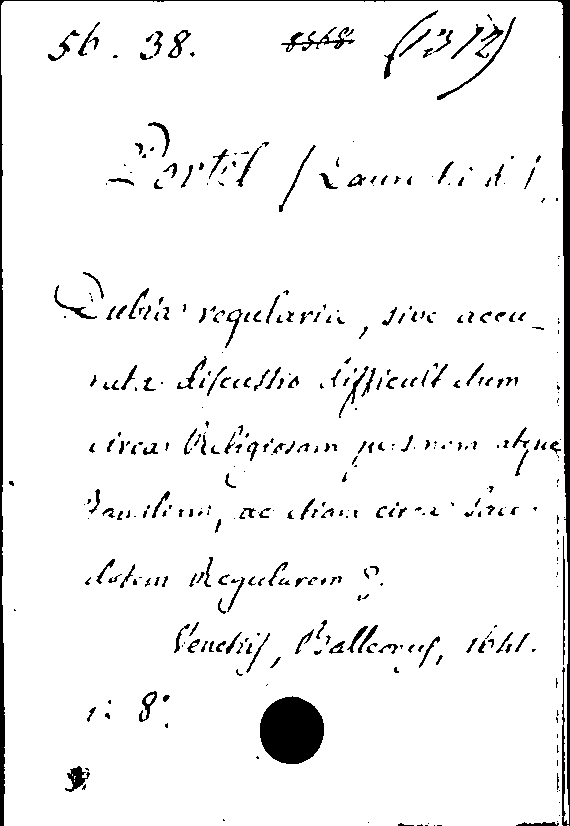 56. 38. 8368 (1312)
Portel (Laurentii d.)
Dubia regularia, sive accu-
ratæ discussio difficultatum
circa Religiosam personam atque
familiam, ac etiam circa Sacer-
dotem Regularem &.
Venetiis, Balleonius, 1641.
1: 8°.